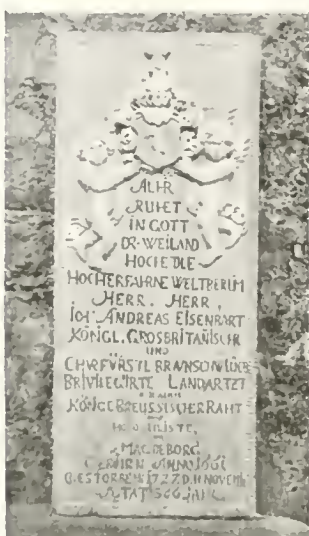 ALHR
RUHET
IN GOTT
DR. WEILAND
HOCHEDLE
HOCHERFAHRNE WELTBERUM
HERR, HERR,
IOH ANDREAS EISENBART
KÖNIGL. GROSBRITANISCHR
UND
CHVRFÜRSTL BRAUNSCHW LÜNEB
PRIVILEGIRTE LANDARTZT
KÖNIGL PREUSSISCHER RAHT
MAGDEBORG
GEBOHRN ANNO 1661
GESTORBEN 1727 D. 11 NOVEMB
ÆTAT 66 JAHR